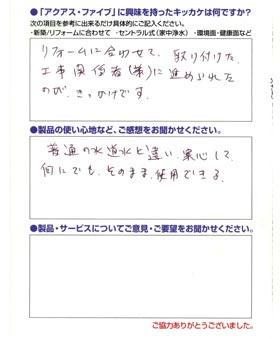 ●「アクアス・ファイブ」に興味を持ったキッカケは何ですか?
次の項目を参考に出来るだけ具体的にご記入ください。
・新築/リフォームに合わせて ・セントラル式(家中浄水) ・環境面・健康面など
リフォームに合わせて、取り付けた。
工事関係者(弟)に進められた
のが、きっかけです。
●製品の使い心地など、ご感想をお聞かせください。
普通の水道水と違い、安心して、
何にでも、そのまま、使用できる。
●製品・サービスについてご意見・ご要望をお聞かせください。
ご協力ありがとうございました。